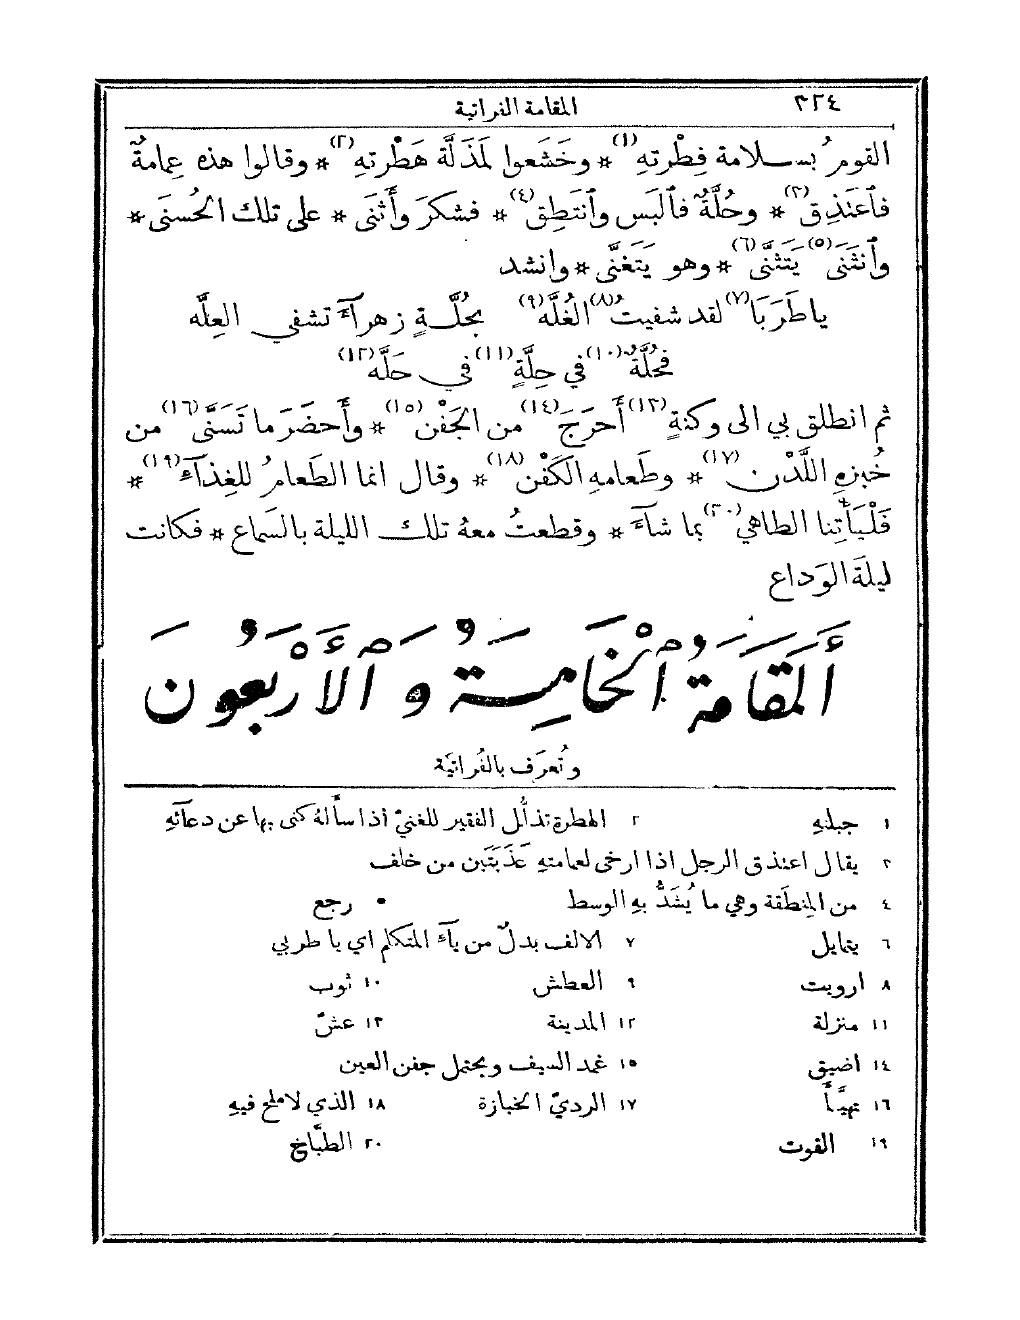 ٣٢٤ المقامة الفراتية
القومُ بسلامة فِطْرتهِ (١) * وخَشَعوا لمَذَلَّة هَطْرتهِ (٢) * وقالوا هذه عِمامةٌ
فاَعتَذِق (٣) * وحُلَّةٌ فاَلبَس واَنتَطِق (٤) * فشكرَ وأَثنَى * على تلك الحُسنَى *
واَنثَنَى (٥) يَتَثنَّى (٦) * وهو يَتَغنَّى * وانشد
يا طَرَبَا (٧) لقد شفيتُ (٨) الغُلَّه (٩) بحُلَّةٍ زهرآءَ تشفي العِلَّه
فحُلَّةٌ (١٠) في حِلَّةٍ (١١) في حَلَّه (١٢)
ثم انطلق بي الى وكنةٍ (١٣) أَحرَجَ (١٤) من الجَفْن (١٥) * وأَحضَرَ ما تَسَنَّى (١٦) من
خُبزهِ اللَّدْن (١٧) * وطَعامهِ الكَفْن (١٨) * وقال انما الطَعامُ للغِذآءَ (١٩) *
فَلْيَأْتِنا الطاهي (٢٠) بما شآءَ * وقطعتُ معهُ تلك الليلة بالسَماع * فكانت
ليلةَ الوَداع
أَلمَقَامَةُ الْخَامِسَةُ وَالْأَرْبَعُونَ
وتُعرَف بالفُراتيَّة
١ جبلتهِ ٢ الهطرة تذلُّل الفقير للغنيّ اذا سأَلهُ كنى بها عن دعآئهِ
٣ يقال اعتذق الرجل اذا ارخى لعمامتهِ عَذَبَتَين من خلف
٤ من المِنطَقة وهي ما يُشَدُّ بهِ الوسط ٥ رجع
٦ يتمايل ٧ الالف بدلٌ من يآءَ المتكلم اي يا طربي
٨ ارويت ٩ العطش ١٠ ثوب
١١ منزلة ١٢ المدينة ١٣ عشّ
١٤ اضيق ١٥ غمد السيف ويحتمل جفن العين
١٦ تهيَّأَ ١٧ الرديّ الخبازة ١٨ الذي لا ملح فيهِ
١٩ القوت ٢٠ الطبَّاخ